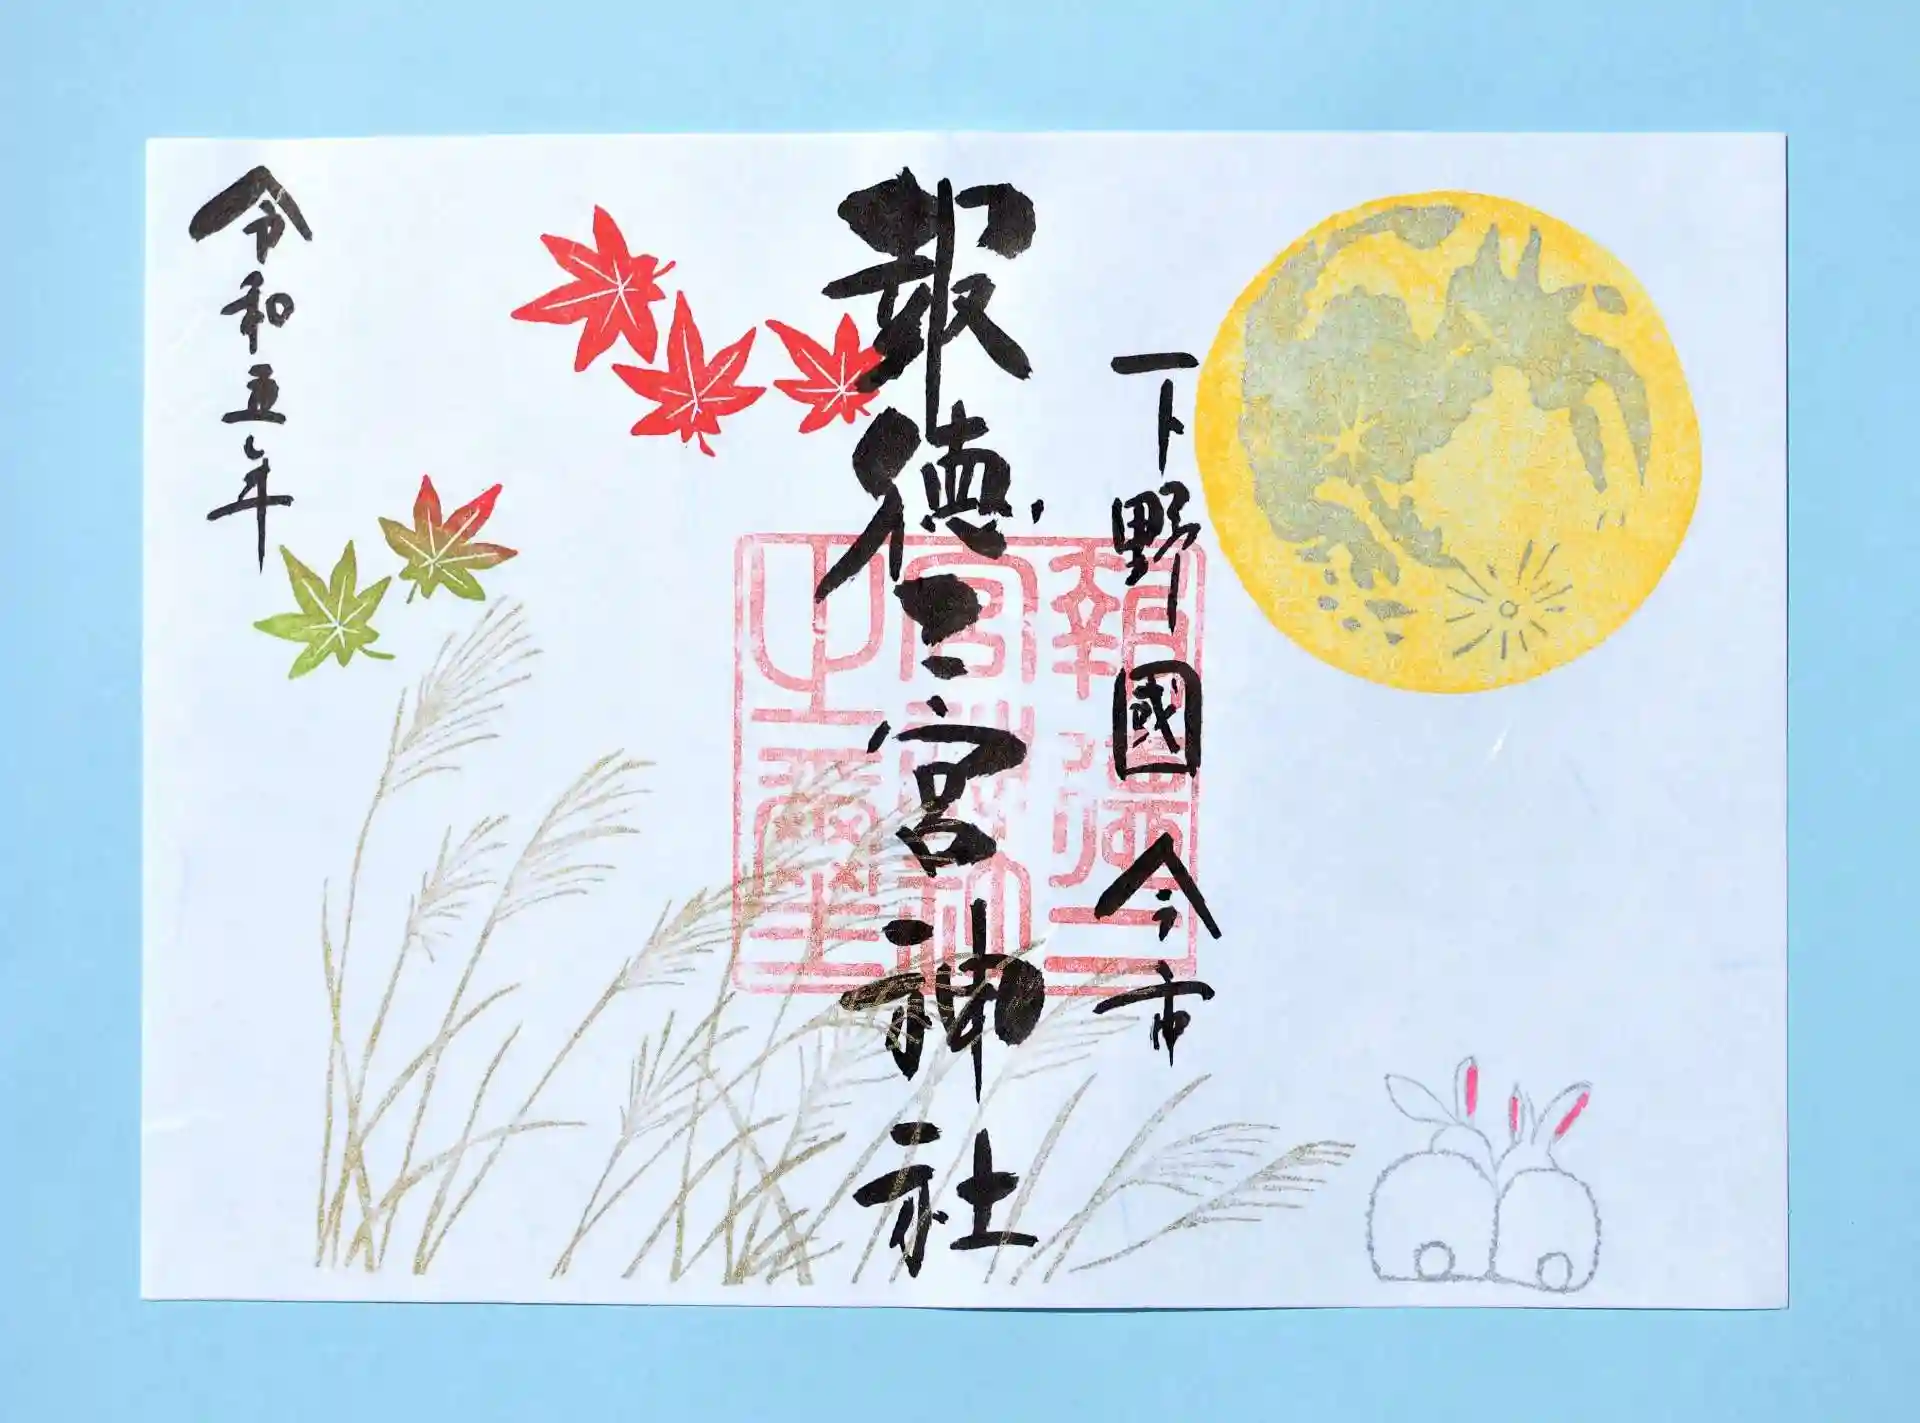 下野國今市
報徳二宮神社
令和五年
報徳二
宮神社
之璽